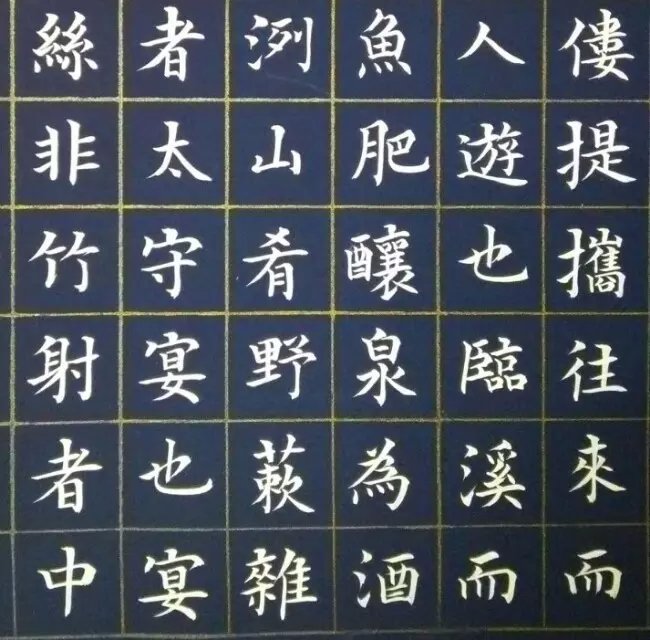 僂提攜往來而
人遊也臨溪而
魚肥釀泉為酒
洌山肴野蔌雜
者太守宴也宴
絲非竹射者中